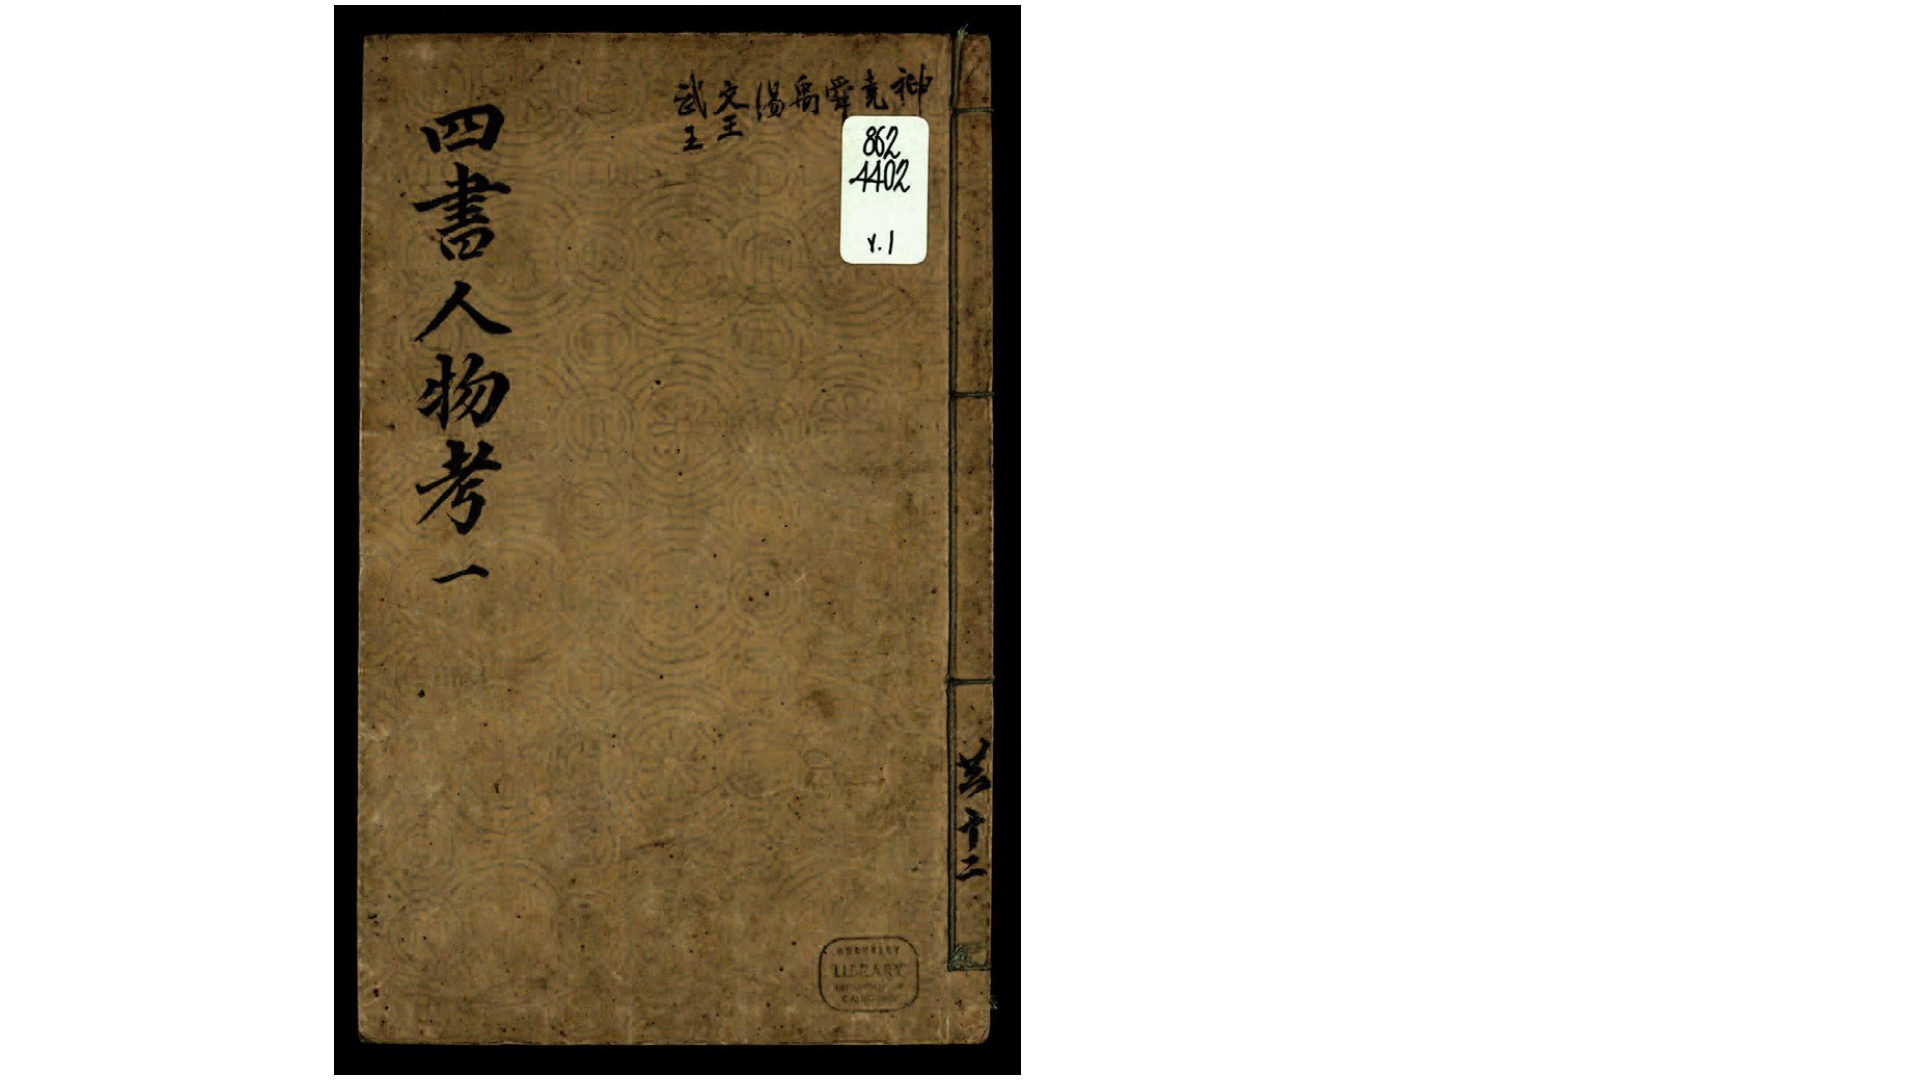 四書人物考 一
神 堯 舜 禹 湯 文王 武王
862
4402
v.1
共十二
BERKELEY
LIBRARY
UNIVERSITY OF
CALIFORNIA